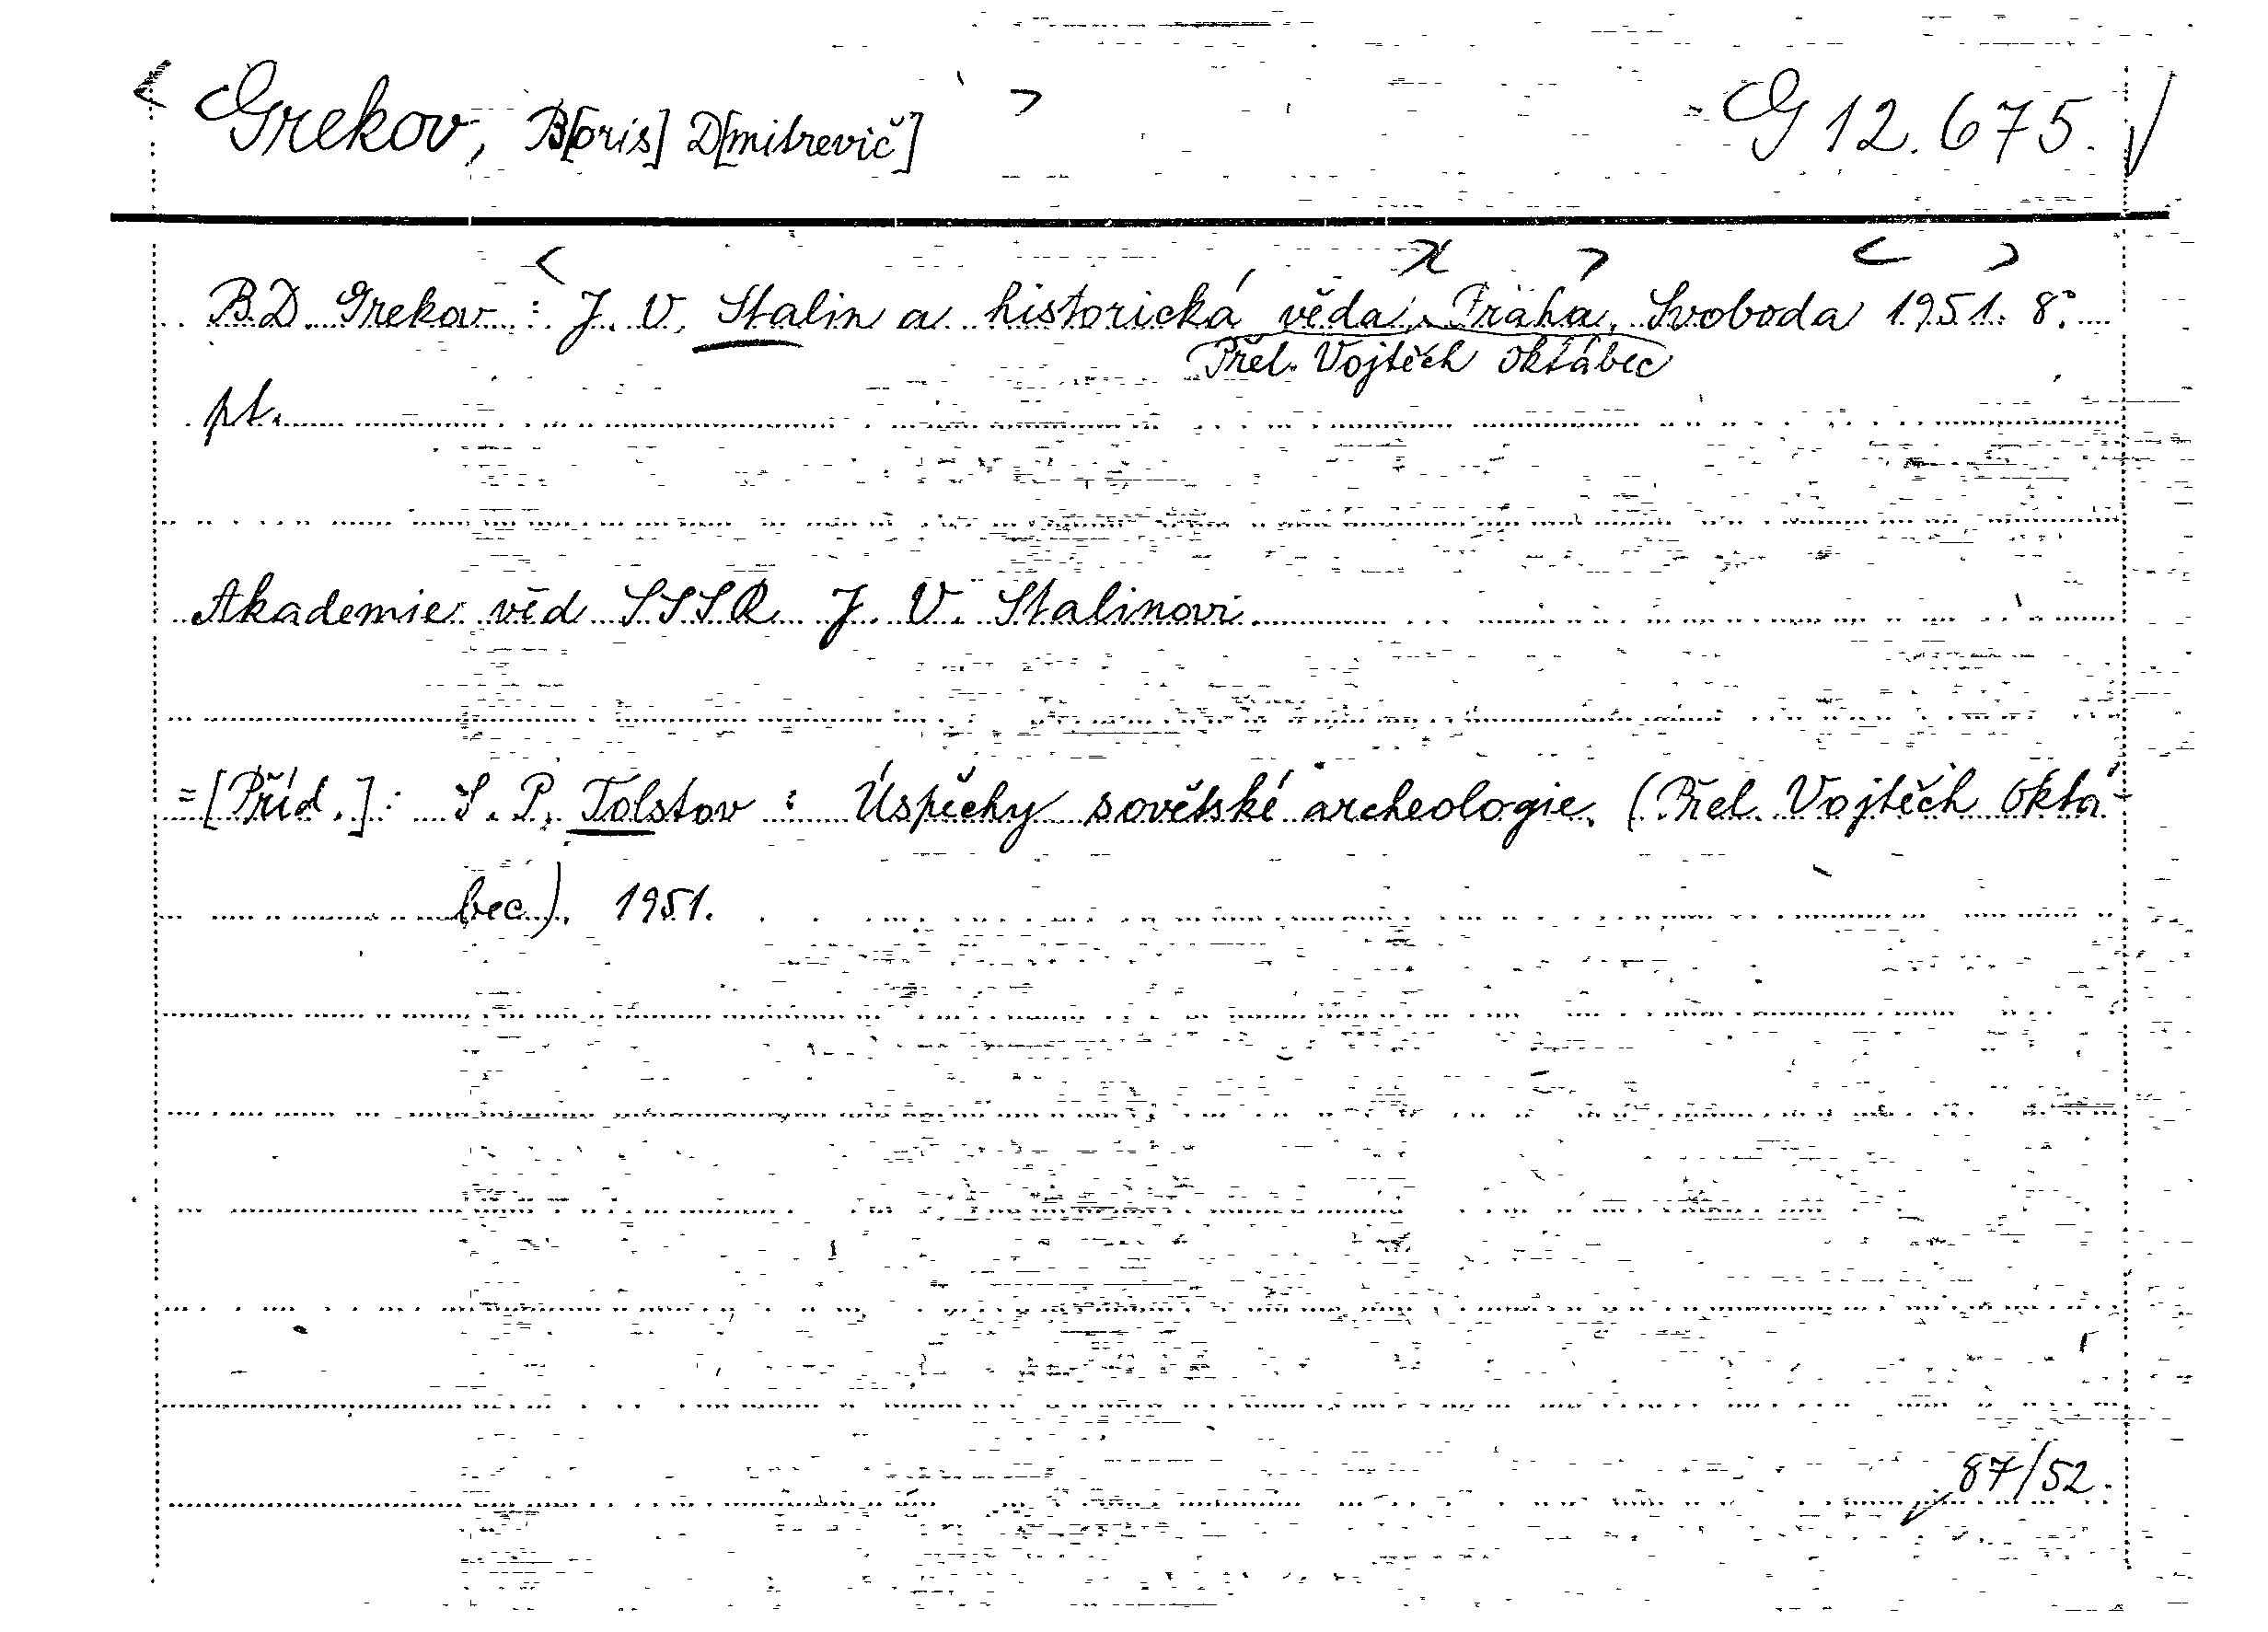 < Grekov, B[oris] D[mitrevič] > G 12.675.
B.D. Grekov: J. V. Stalin a historická věda. Praha, Svoboda 1951. 8°.
Přel. Vojtěch Oktábec
pt.
Akademie věd SSSR J. V. Stalinovi
=[Příd.]: S. P. Tolstov: Úspěchy sovětské archeologie. (Přel. Vojtěch Oktá-
bec). 1951.
87/52.